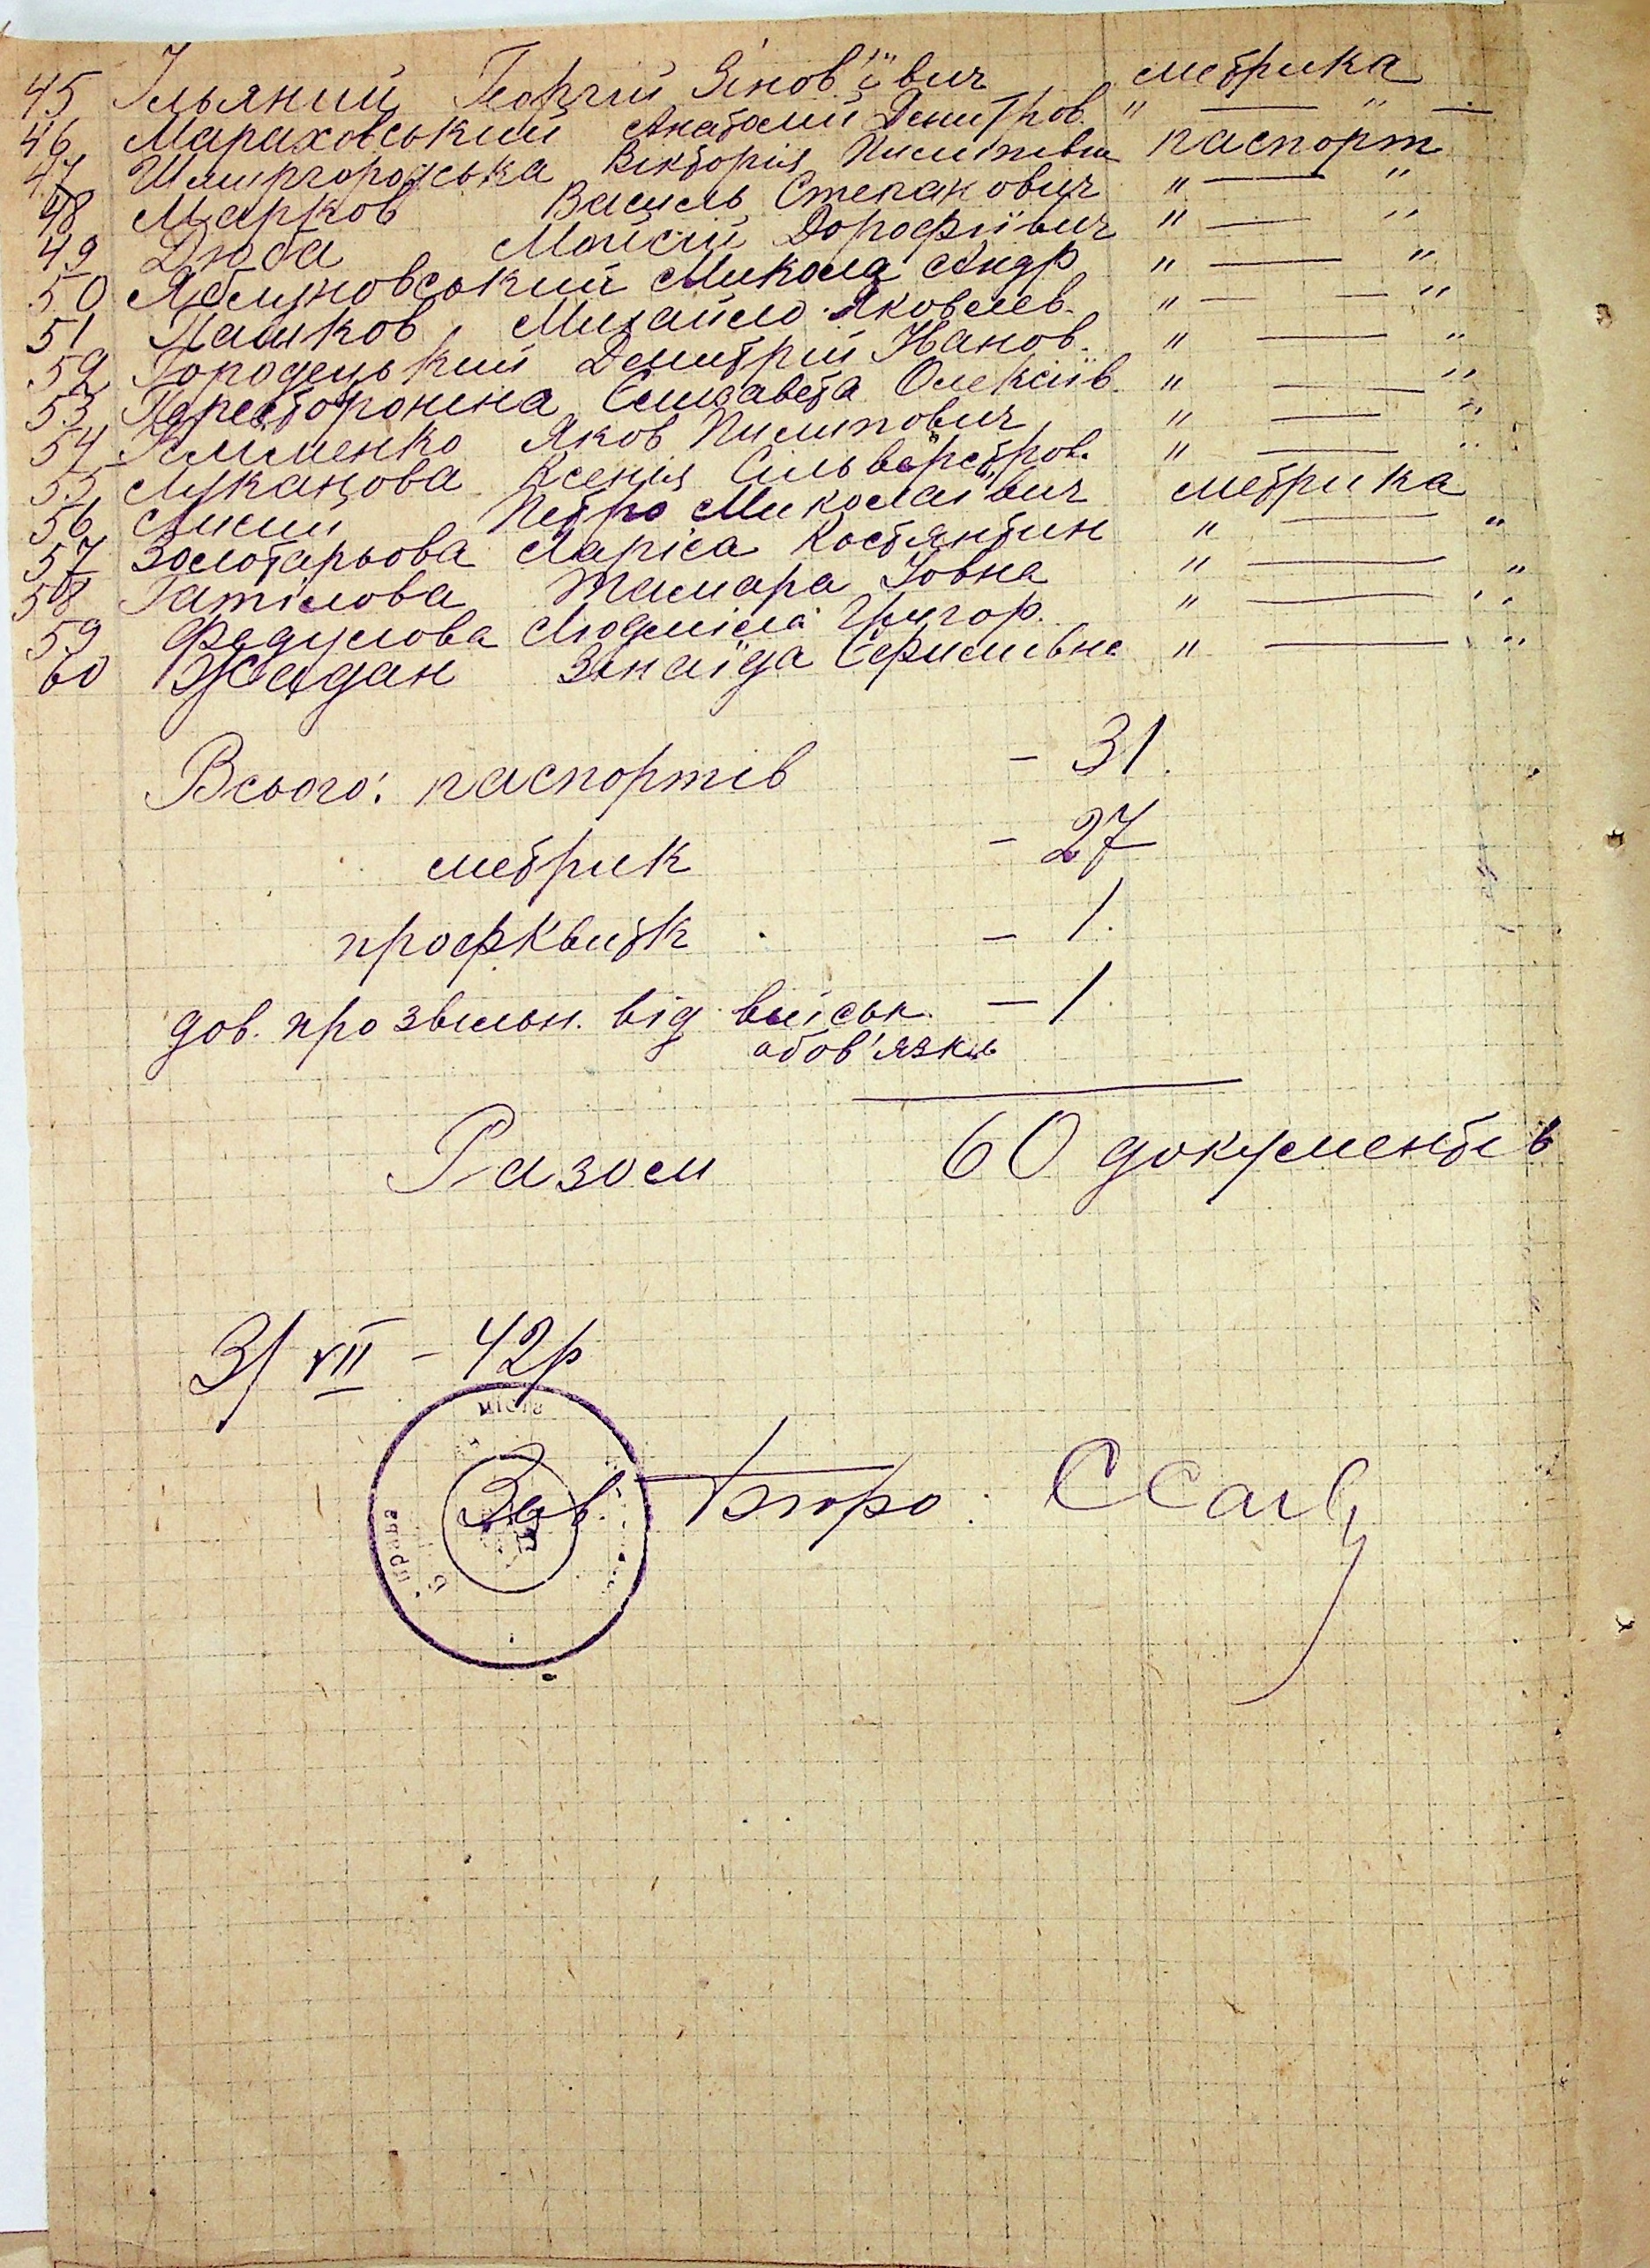 45 Ільяний Георгій Зінов'ївич метрика
46 Мараховський Анатолій Дмитров. " — " —
47 Шмиргородська Вікторія Пилипівна паспорт
48 Марков Василь Степанович " — "
49 Дзюба Мойсій Дорофійвич " — "
50 Яблуновський Микола Андр " — "
51 Пашков Михайло Яковлев. " — — "
52 Городецький Дмитрій Іванов. " — "
53 Пересторонина Єлизавета Олексіїв. " — "
54 Клименко Яков Пилипович " — "
55 Луканцова Ксенія Сільверстров. " — "
56 Лисий Петро Миколаївич метрика
57 Золотарьова Ларіса Костянтин " — "
58 Гатілова Тамара Іовна " — "
59 Федулова Людміла Григор. " — "
60 Жадан Зінаїда Єфимівна " — "
Всього: паспортів – 31.
метрик – 27
профквитк – 1.
дов. про звільн. від військ. – 1.
обов'язків
Разом 60 документів
31 VII – 42р
міста
Зав. Бюро.
управа